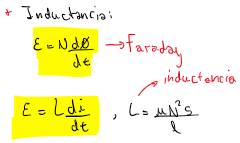 * Inductancia:
ε = N dø/dt → Faraday
inductencia
ε = L di/dt , L = μN²s/l